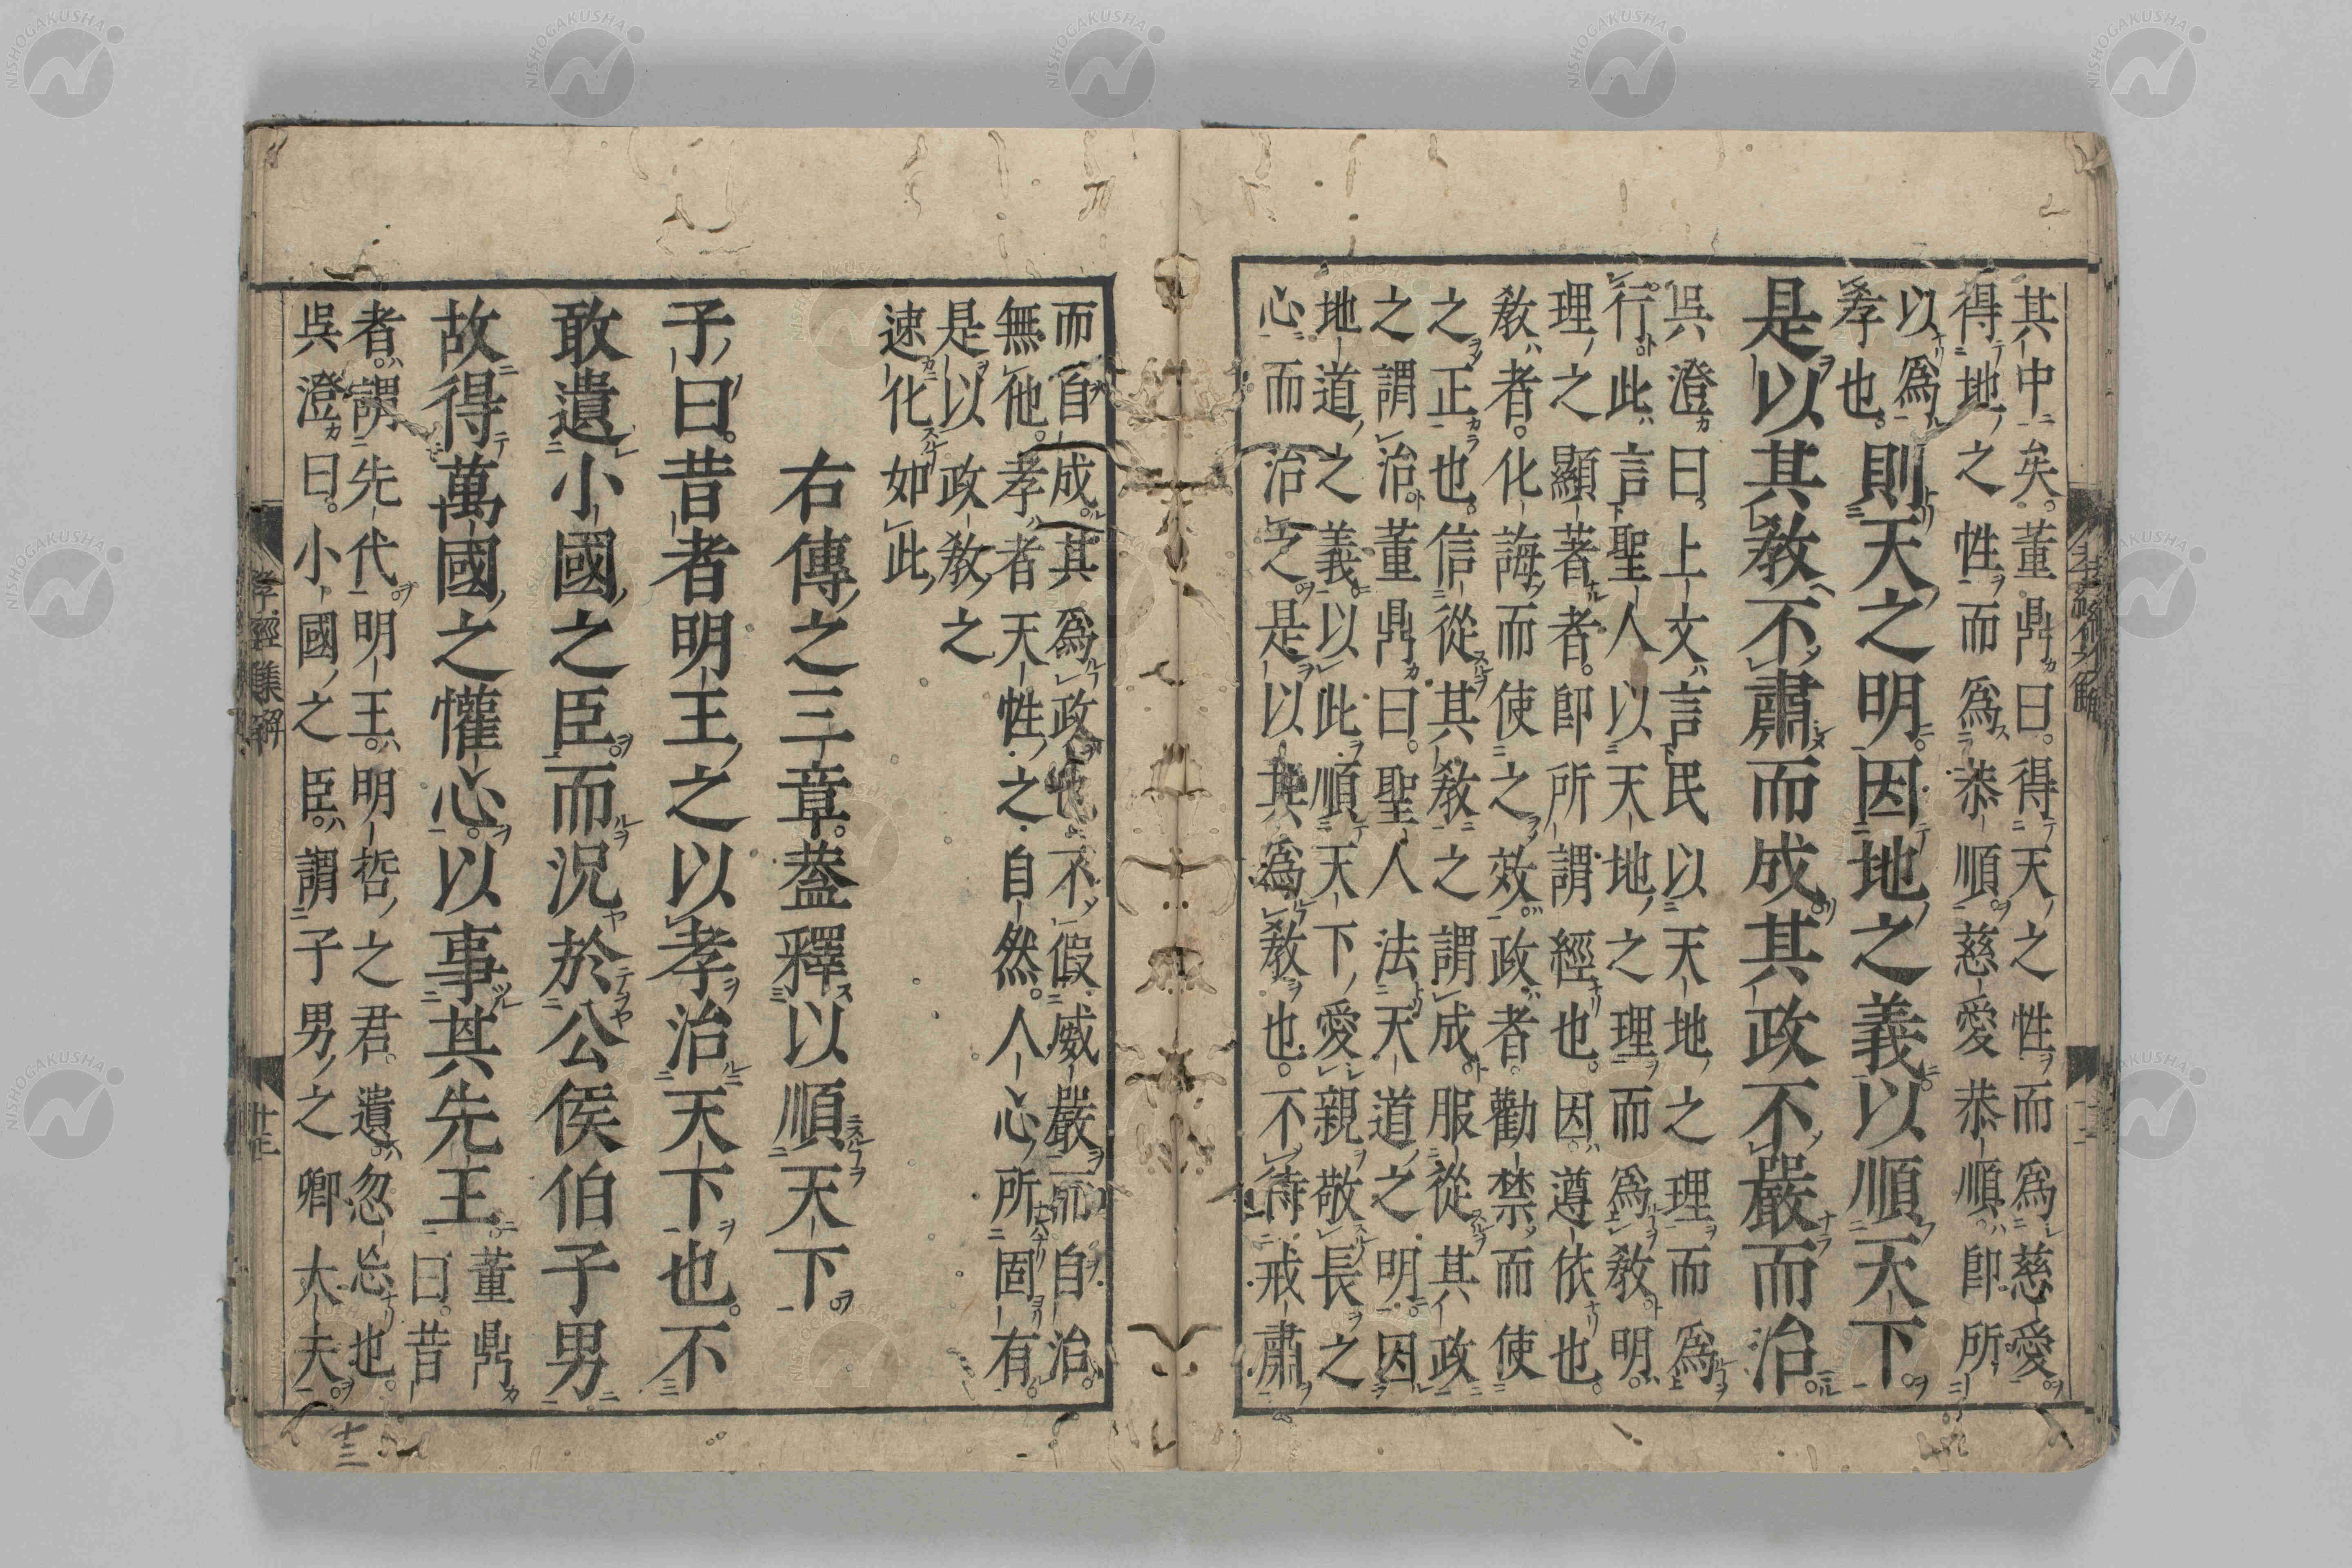 其中矣。董鼎曰。得天之性而爲慈愛
得地之性而爲恭順。慈愛恭順。即所
以爲
孝也。
則天之明因地之義以順天下
是以其教不肅而成其政不嚴而治
吳澄曰。上文言民以天地之理而爲
行。此言聖人以天地之理而爲教。明。
理之顯著者。即所謂經也。因遵依也。
教者。化誨而使之效。政者。勸禁而使
之正也。信從其教之謂成。服從其政
之謂治。董鼎曰。聖人法天道之明。因
地道之義以此順天下愛親敬長之
心而治之。是以其爲教也。不待戒肅
而自成。其爲政也不假威嚴而自治。
無他。孝者天性之自然。人心所固有。
是以政教之
速化如此
右傳之三章。蓋釋以順天下
子曰。昔者明王之以孝治天下也。不
敢遺小國之臣。而況於公侯伯子男
故得萬國之懽心。以事其先王。
董鼎
曰。昔
者。謂先代明王。明哲之君。遺忽忘也。
吳澄曰。小國之臣。謂子男之卿大夫
孝經集解
十三
NISHOGAKUSHA